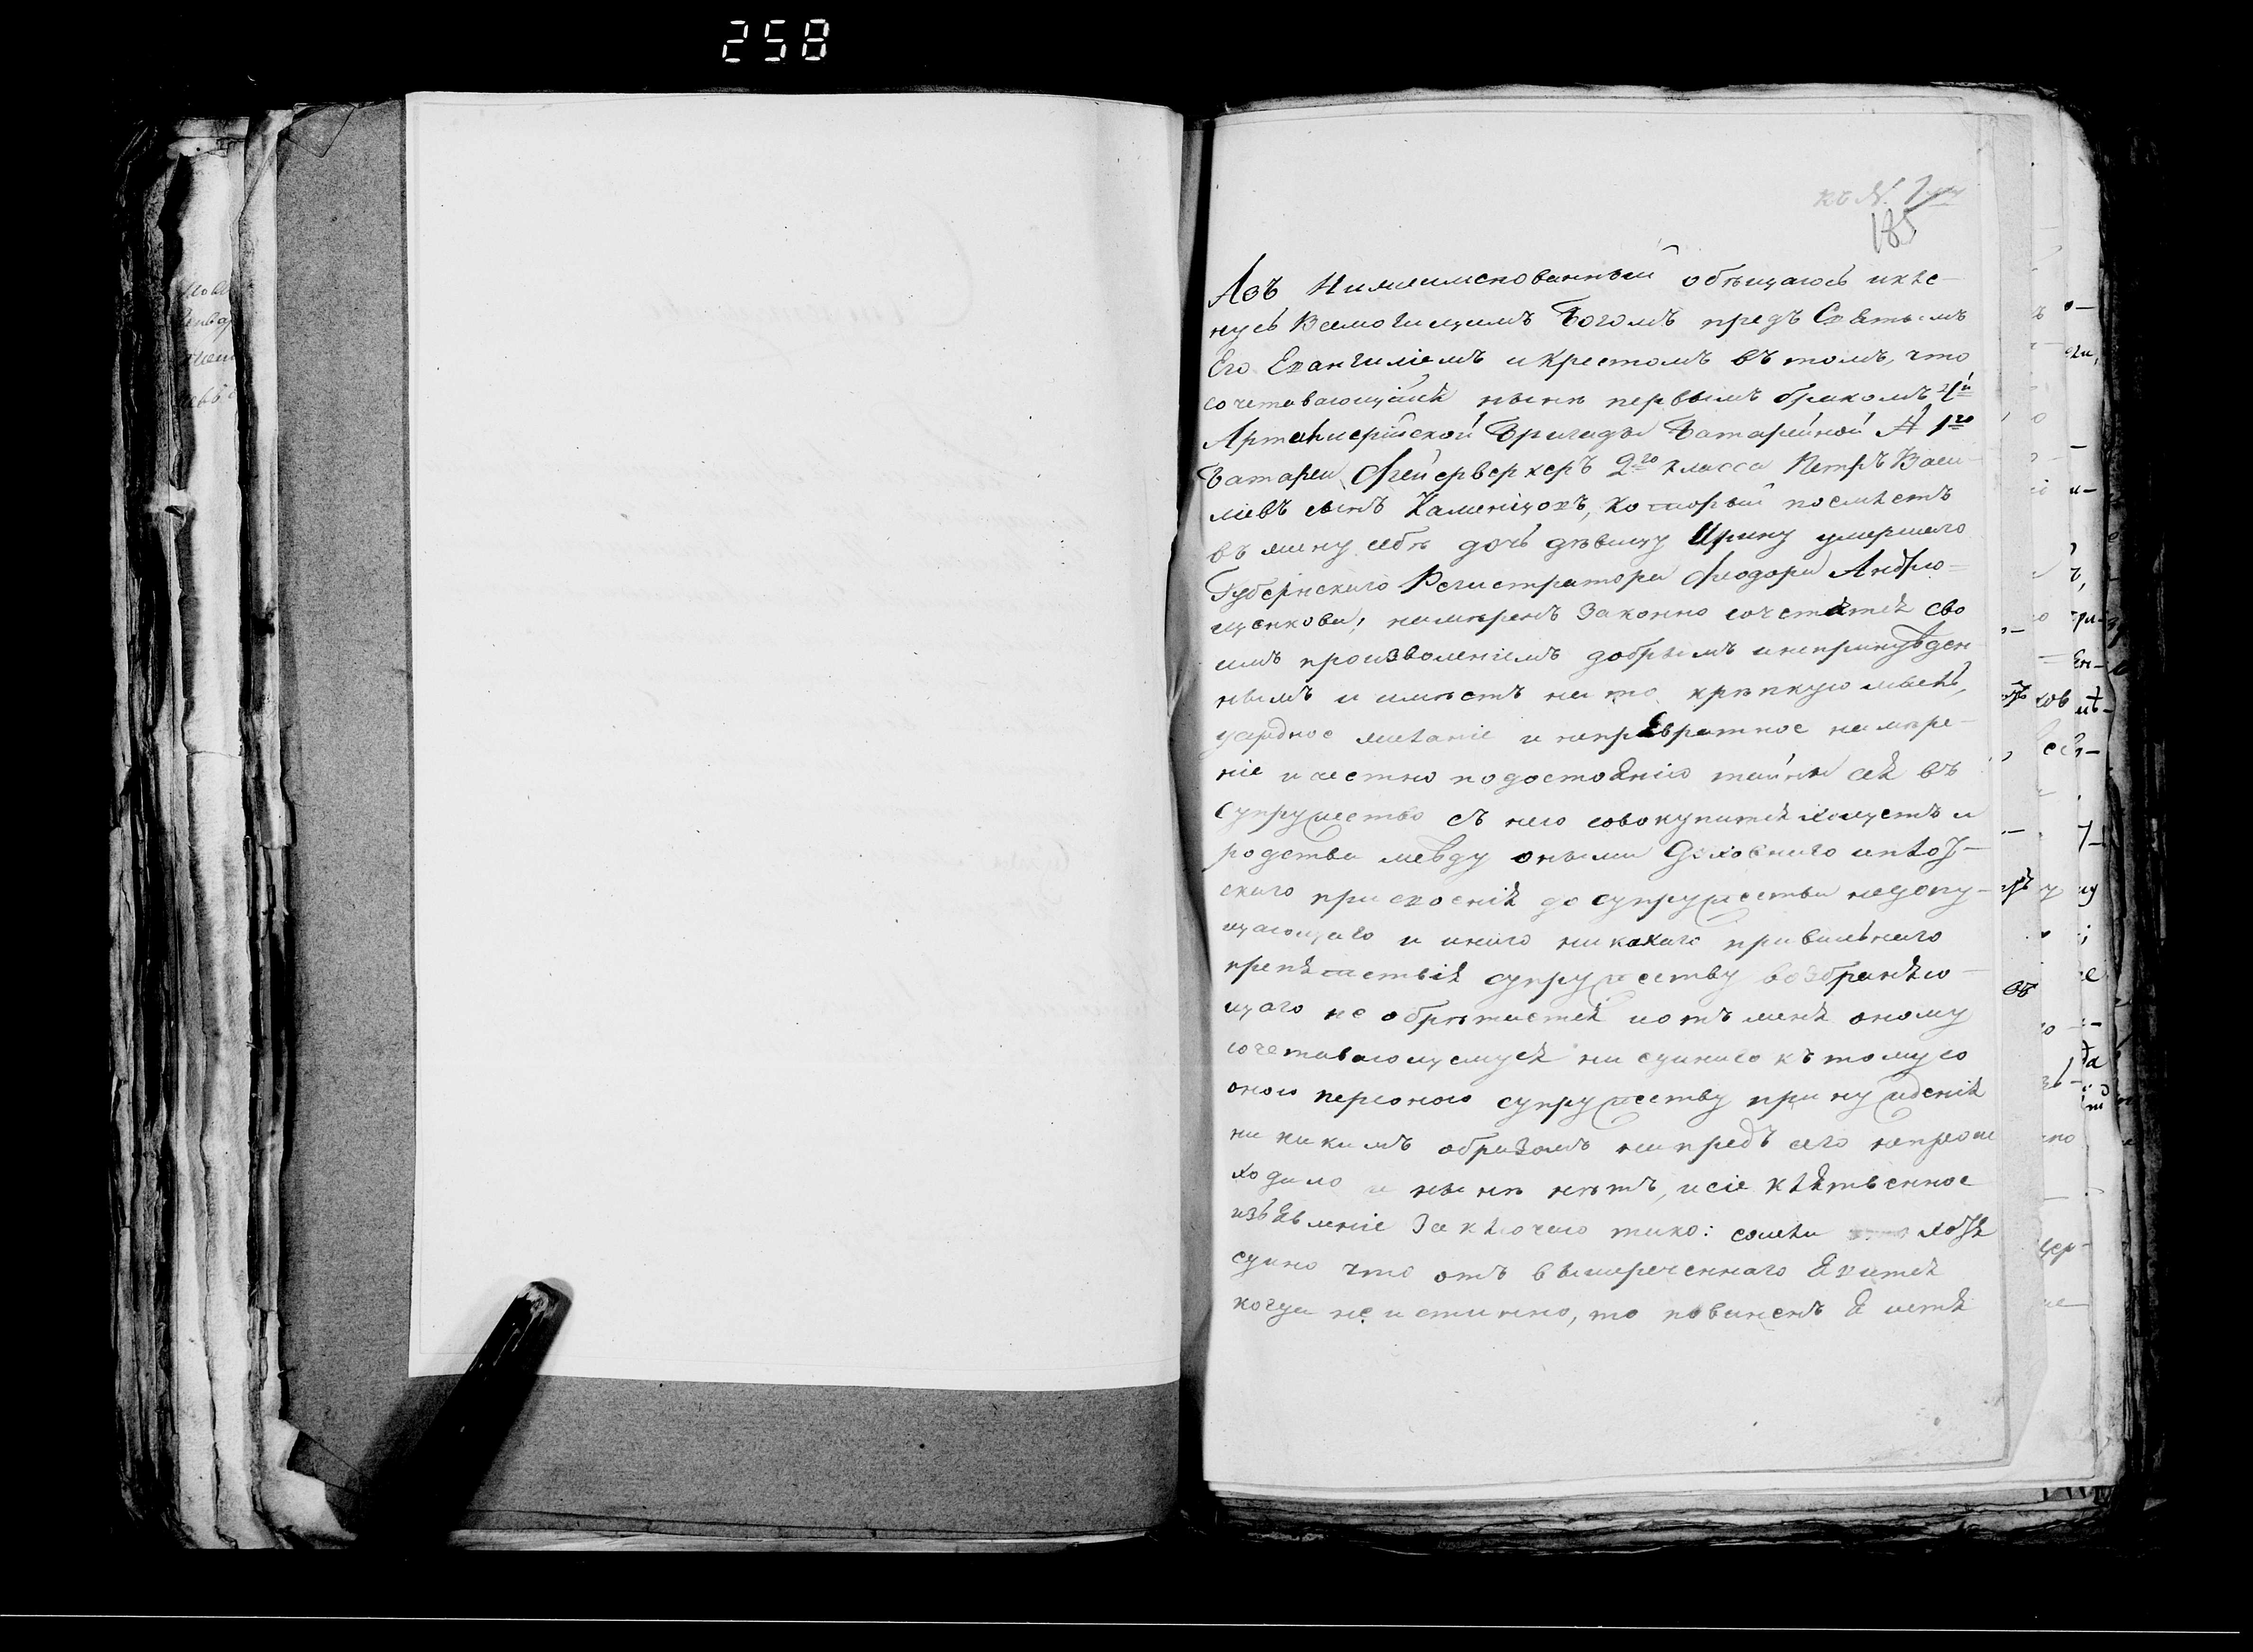 258
къ N. 7му
185
Азъ Нижеименованный обѣщаюсь и кле-
нусь Всемогищимъ Богомъ предъ Святымъ
Его Евангиліемъ и Крестомъ въ томъ, что
сочетавающійся нынѣ первымъ бракомъ 4й
Артилиерійской Бригады Батарейной № 1го
Батареи Фгейерверкеръ 2го класса Петръ Васи-
ліевъ сынъ Каменцовъ, который поемлетъ
въ жену себѣ дочь дѣвицу Ирину умершаго
Губернскаго Регистратора Феодора Андрю-
щенкова, намѣренъ Законно сочетатся сво
имъ произволеніемъ добрымъ и непринужден
нымъ и имѣетъ на то крѣпкую мысль,
усердное желаніе и непревратное намѣре-
ніе и честно по достоянію тайны сея въ
супружество съ нею совокупится хощетъ и
родства между оными Духовнаго и плот-
скаго присвоенія до супружества недопу-
щающаго и иного никакаго правильнаго
препятствія супружеству возбраняю-
щаго не обрѣтается и отъ меня оному
сочетавающемуся ни единаго къ тому со
оною персоною супружеству принужденія
ни какимъ образомъ напредъ сего непроис
ходило и нынѣ нѣтъ, и сіе клятвенное
извявленіе Заключаю тако: солжи хотя
едино что отъ вышереченнаго явится
когда не истинно, то повиненъ я